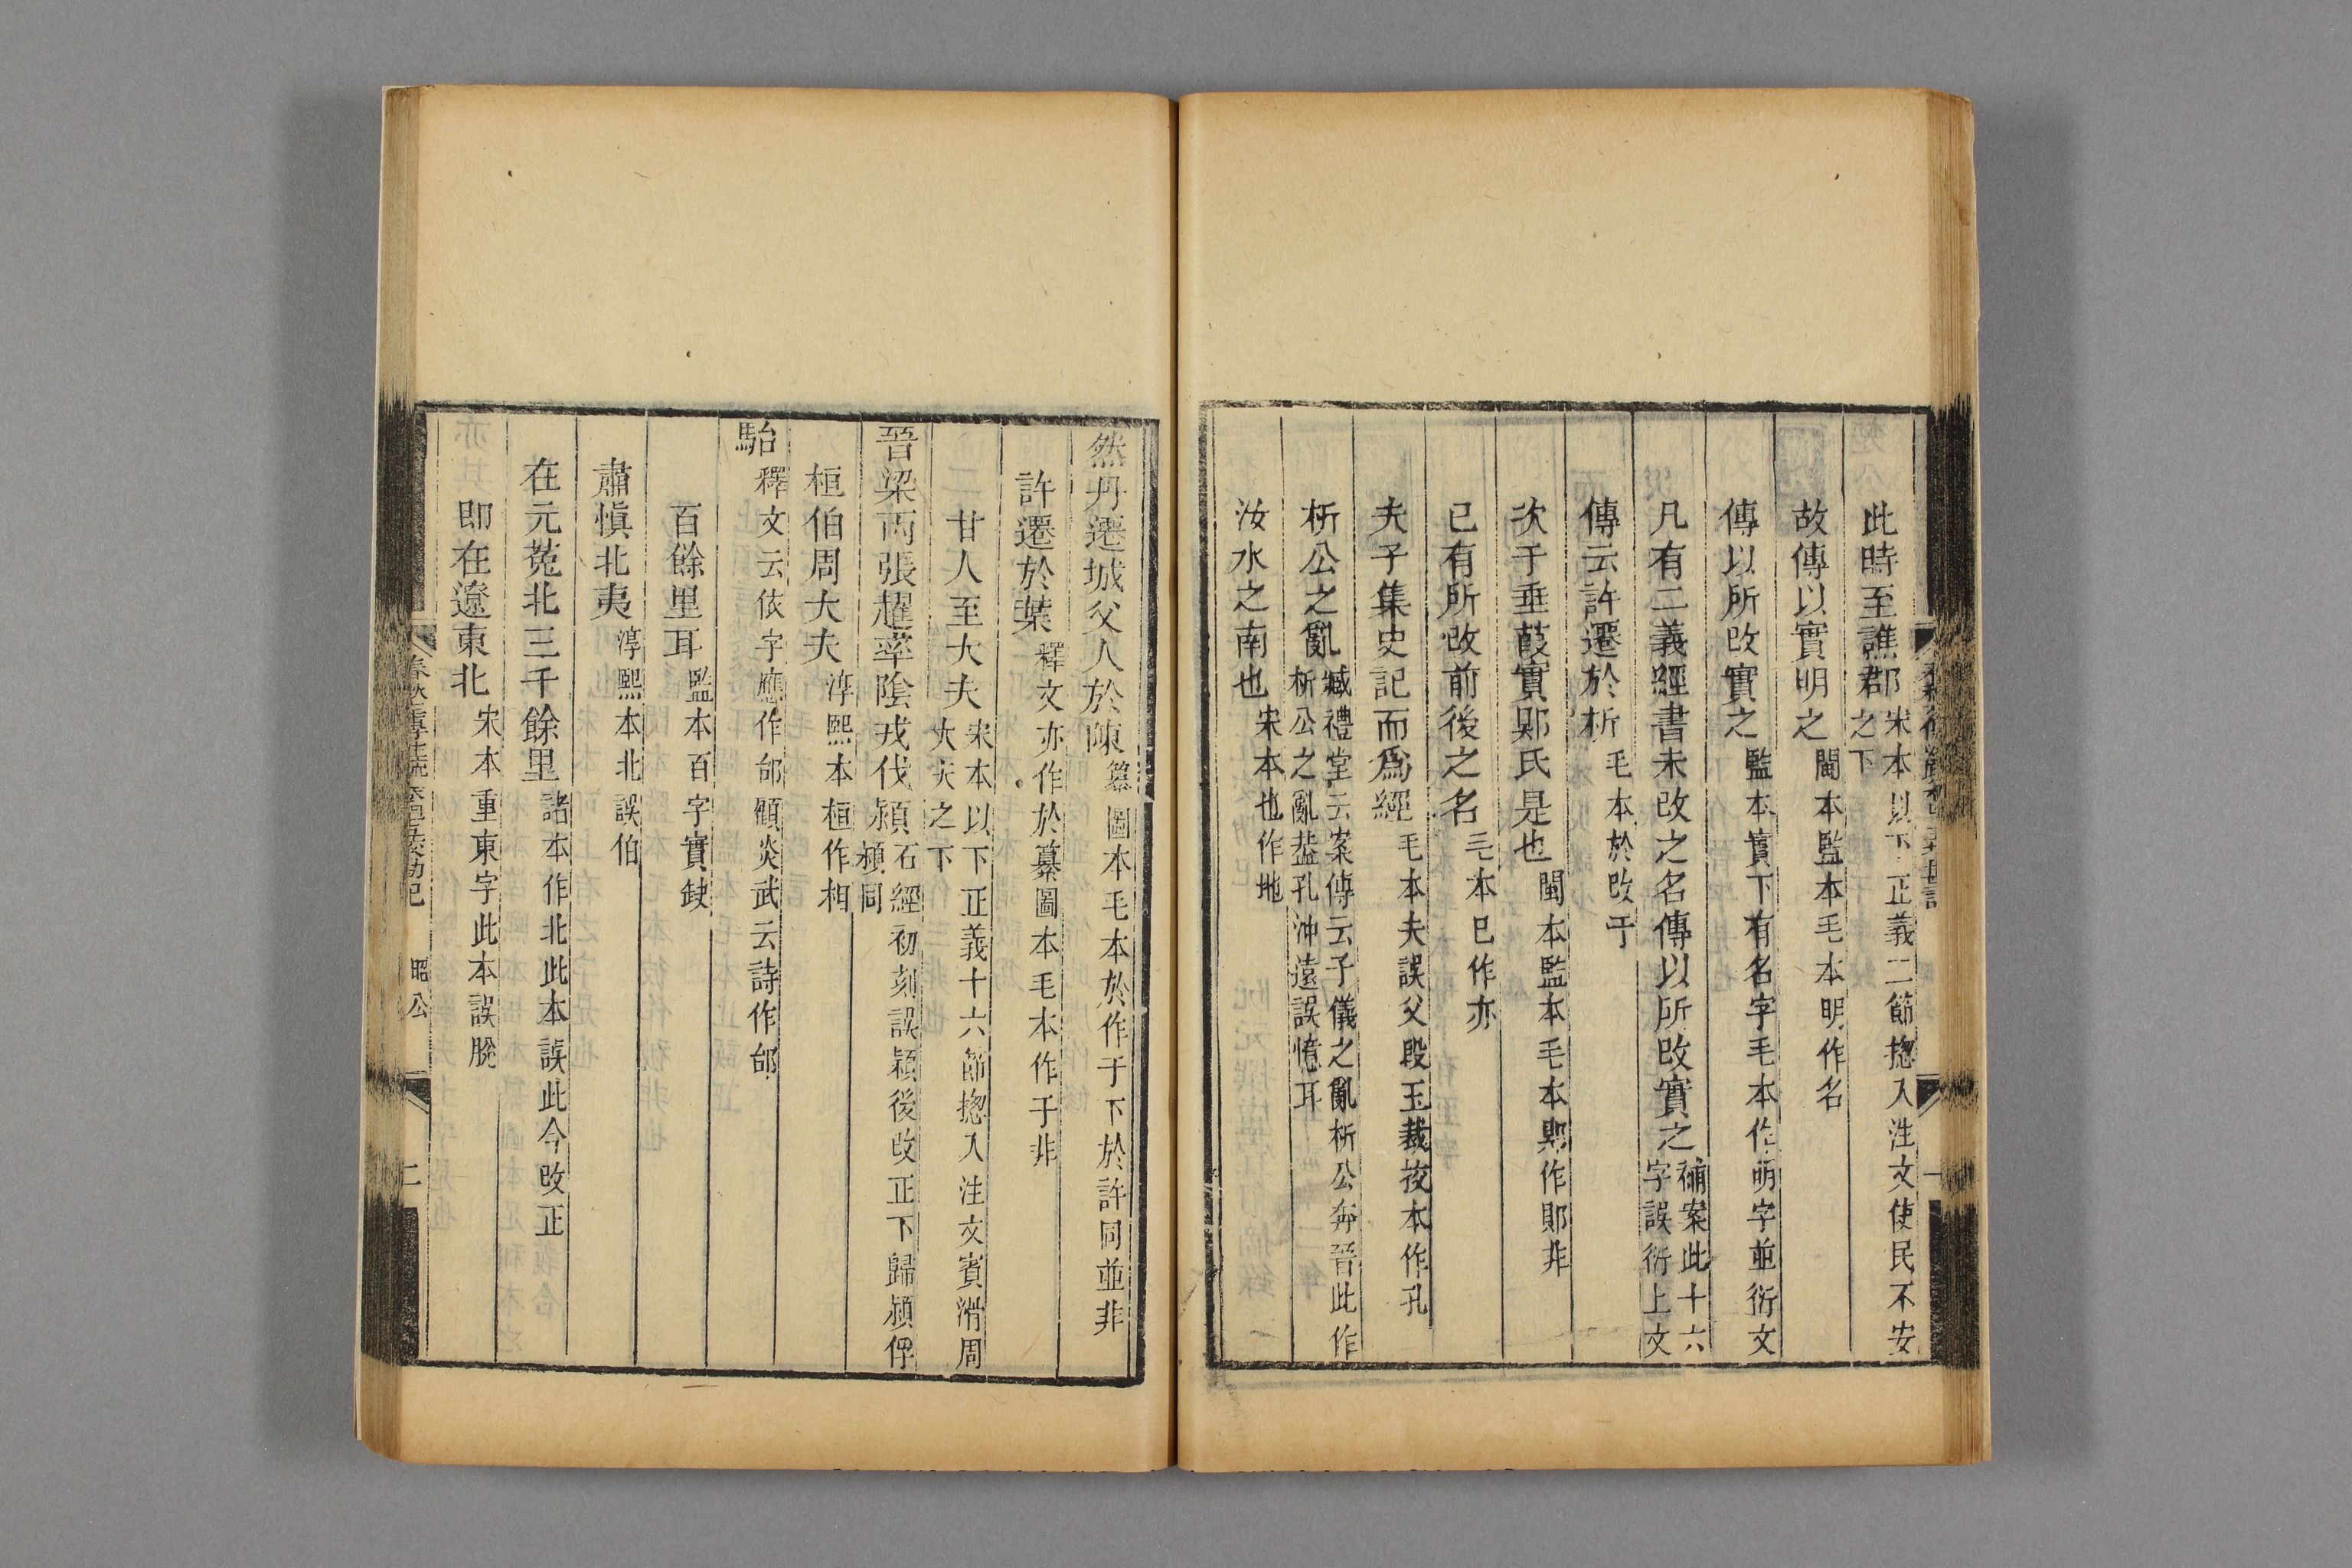 此時至譙郡宋本以下正義二節揔入注文使民不安之下
故傳以實明之閩本監本毛本明作名
傳以所改實之監本實下有名字毛本作明字並衍文
凡有二義經書未改之名傳以所改實之補案此十六字誤衍上文
傳云許遷於析毛本於改于
次于垂葭實郹氏是也閩本監本毛本郹作郥非
已有所改前後之名毛本已作亦
夫子集史記而爲經毛本夫誤父段玉裁挍本作孔
析公之亂臧禮堂云案傳云子儀之亂析公奔晉此作析公之亂葢孔沖遠誤憶耳
汝水之南也宋本也作地
然丹遷城父人於陳纂圖本毛本於作于下於許同並非
許遷於葉釋文亦作於纂圖本毛本作于非
甘人至大夫宋本以下正義十六節揔入注文賓滑周大夫之下
晉梁丙張趯率陰戎伐潁石經初刻誤穎後改正下歸潁俘潁同
桓伯周大夫淳熙本桓作相
駘釋文云依字應作邰顧炎武云詩作邰
百餘里耳監本百字實缺
肅愼北夷淳熙本北誤伯
在元菟北三千餘里諸本作北此本誤此今改正
即在遼東北宋本重東字此本誤脫
昭公
二